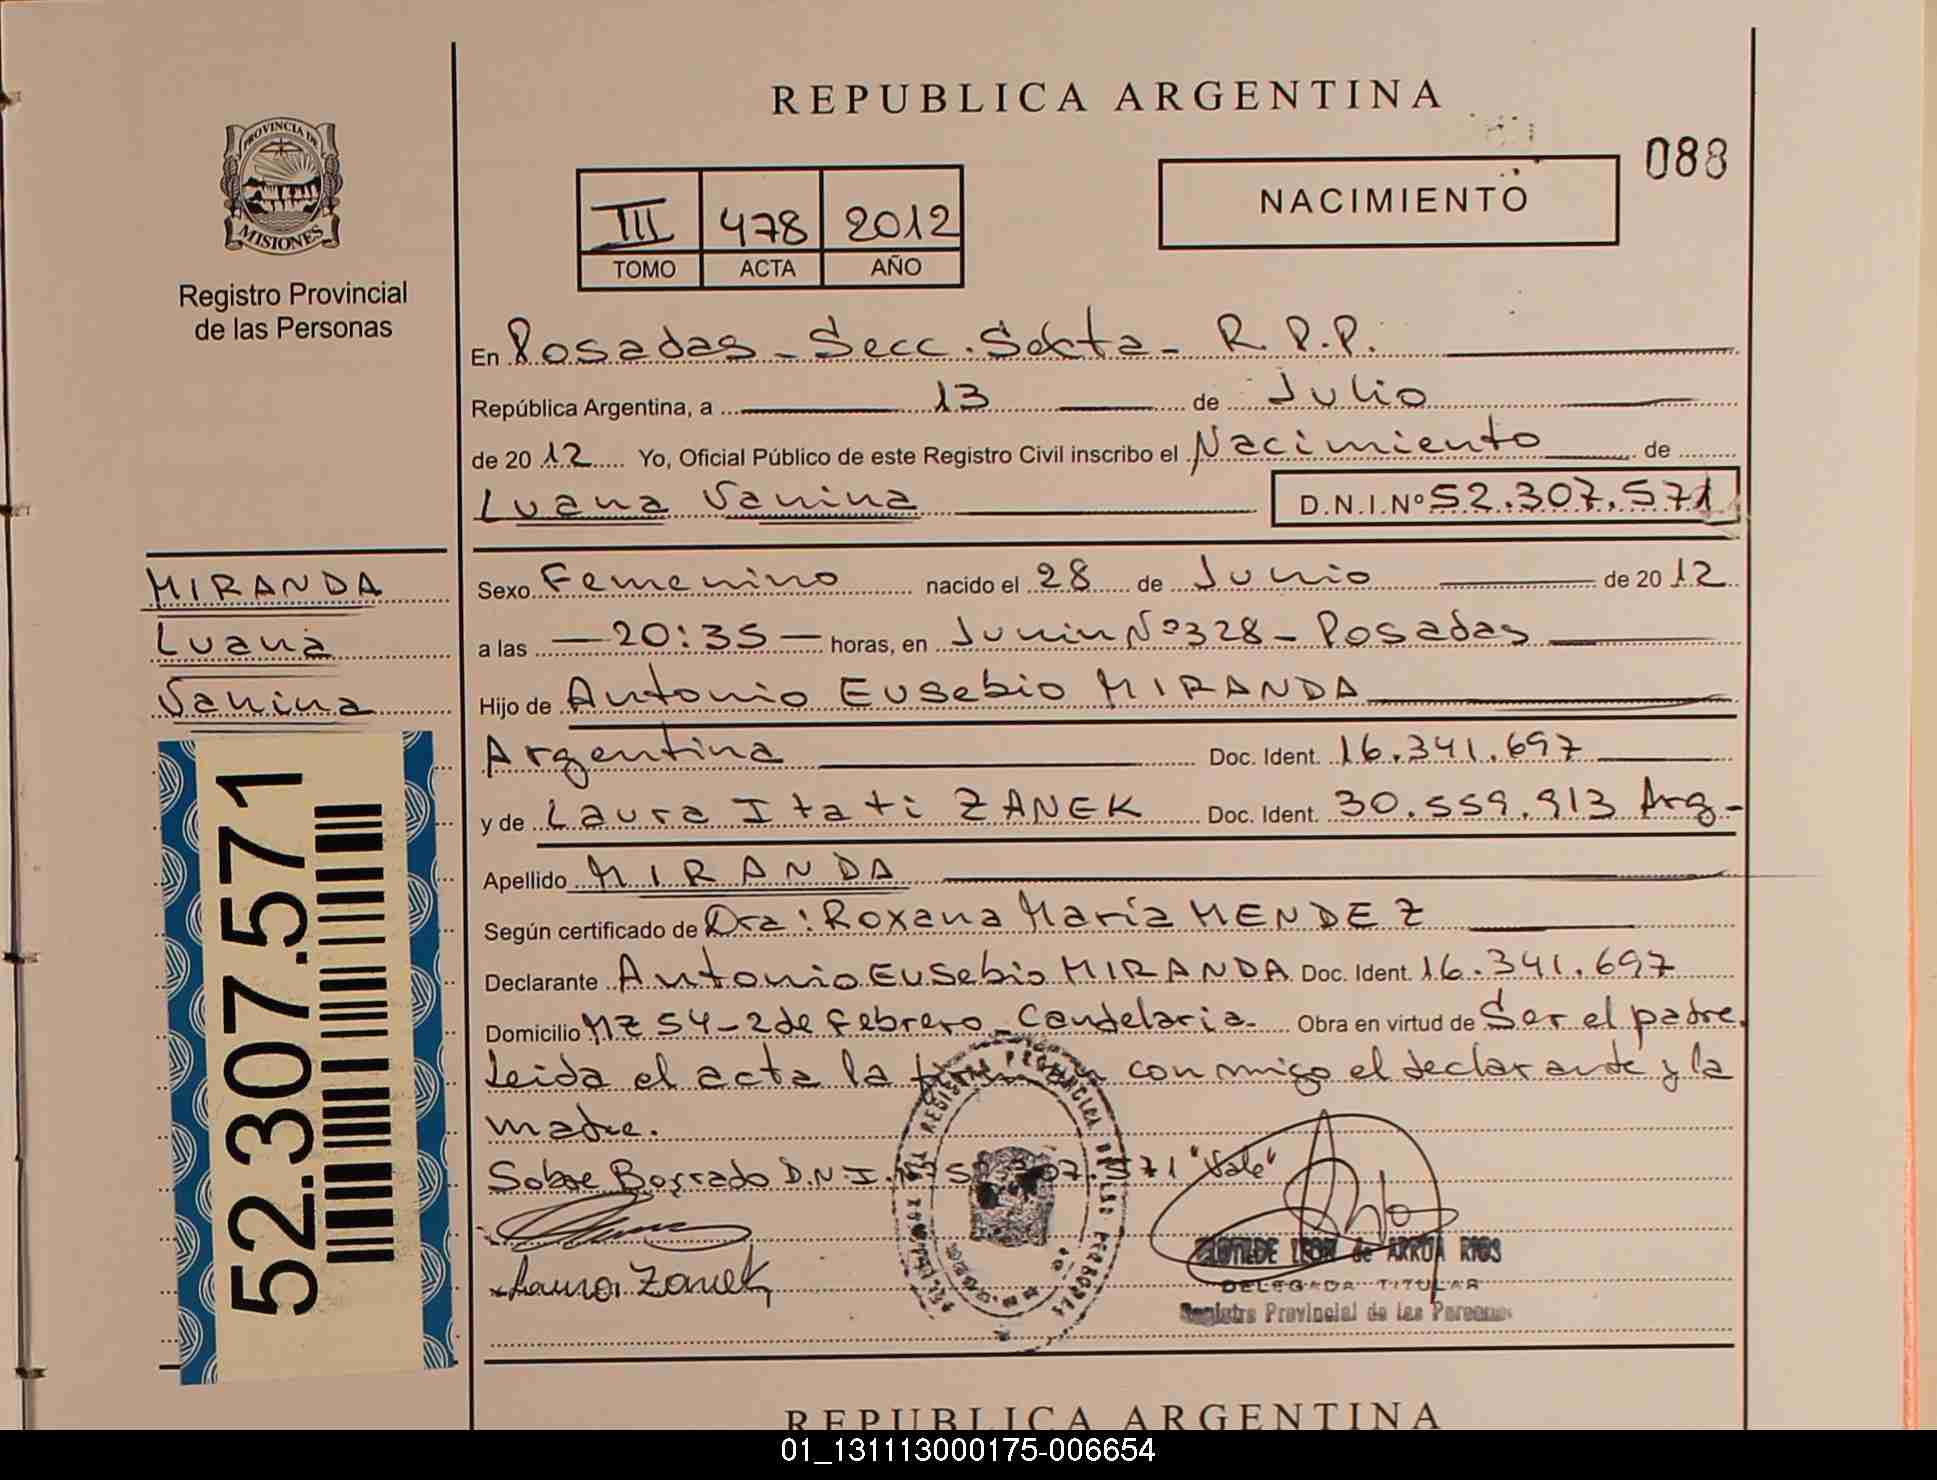 REPUBLICA ARGENTINA
088
PROVINCIA DE
MISIONES
Registro Provincial
de las Personas
III 478 2012
TOMO ACTA AÑO
NACIMIENTO
En Posadas - Secc. Sexta - R.P.P.
República Argentina, a 13 de Julio
de 2012 Yo, Oficial Público de este Registro Civil inscribo el Nacimiento de
Luana Vanina D.N.I.Nº 52.307.571
MIRANDA
Luana
Vanina
52.307.571
Sexo Femenino nacido el 28 de Junio de 2012
a las - 20:35 - horas, en Junin Nº 328 - Posadas
Hijo de Antonio Eusebio MIRANDA
Argentina Doc. Ident. 16.341.697
y de Laura Itati ZANEK Doc. Ident. 30.559.913 Arg-
Apellido MIRANDA
Según certificado de Dra: Roxana María MENDEZ
Declarante Antonio Eusebio MIRANDA Doc. Ident. 16.341.697
Domicilio MZ 54 - 2 de Febrero - Candelaria. Obra en virtud de Ser el padre.
Leida el acta la conmigo el declarante y la
madre.
Sobre Borrado D.N.I. Nº 52.307.571 "Vale"
Laura Zanek
CLOTILDE LEON de ARRUA RIOS
DELEGADA TITULAR
Registro Provincial de las Personas
REPUBLICA ARGENTINA
01_131113000175-006654